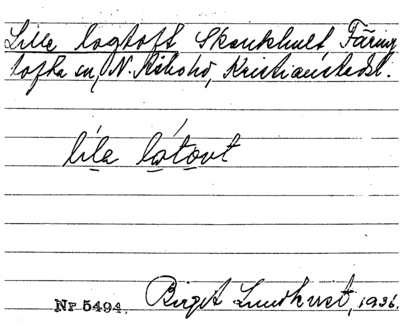 Lille logtoft Skankhult, Färing
tofta sn, N. Åsbohd, Kristianstadsl.
líla lɔ́tovt
Nr 5494. Birgit Lundkvist, 1936.